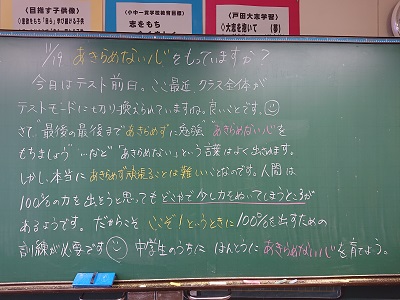 ＜目指す子供像＞
小中一貫学校教育目標
志をもち
戸田大志学習
＜大志を抱いて （夢）
11/19 あきらめない心をもっていますか？
今日はテスト前日。ここ最近クラス全体が
テストモードに切り換えられていますね。良いことです。
さて"最後の最後まであきらめずに勉強""あきらめない心を
もちましょう"…など「あきらめない」という言葉はよく出されます。
しかし、本当にあきらめず頑張ることは難しいことなのです。人間は
100%の力を出そうと思ってもどこかで少し力をぬいてしまうところが
あるようです。だからこそ ここぞ！というときに100%を出すための
訓練が必要です 中学生のうちに ほんとうにあきらめない心を育てよう。